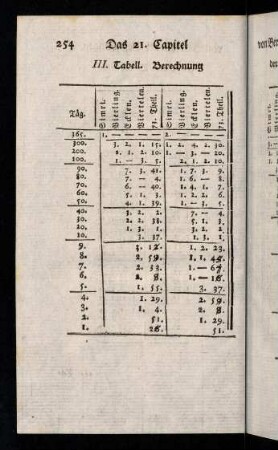 254 Das 21. Capitel
III. Tabell. Berechnung
Täg. Eimri. Vierling. Ecklen. Viertelen. 73. Theil. Eimri. Vierling. Ecklen. Viertelen. 73. Theil.
365. 1. — — — — 2. — — — —
300. 3. 2. 1. 15. 1. 2. 4. 2. 30.
200. 1. — 3. — 20.
100. 1. — 3. 5. 2. 1. 2. 10.
90. 7. 3. 41. 1. 7. 3. 9.
80. 7. — 4. 1. 6. — 8.
70. 6. — 40. 1. 4. 1. 7.
60. 5. 1. 3. 1. 2. 2. 6.
50. 4. 1. 39. 1. — 3. 5.
40. 3. 2. 2. 7. — 4.
30. 2. 2. 38. 5. 1. 3.
20. 1. 3. 1. 3. 2. 2.
10. 3. 37. 1. 3. 1.
9. 3. 1. 2. 23.
8. 2. 1. 1. 45.
7. 2. 33. 1. — 67.
6. 2. 8. 1. — 16.
5. 1. 55. 3. 37.
4. 1. 29. 2.
3. 1. 4. 2. 8.
2. 51. 1. 29.
1. 51.
von Ber